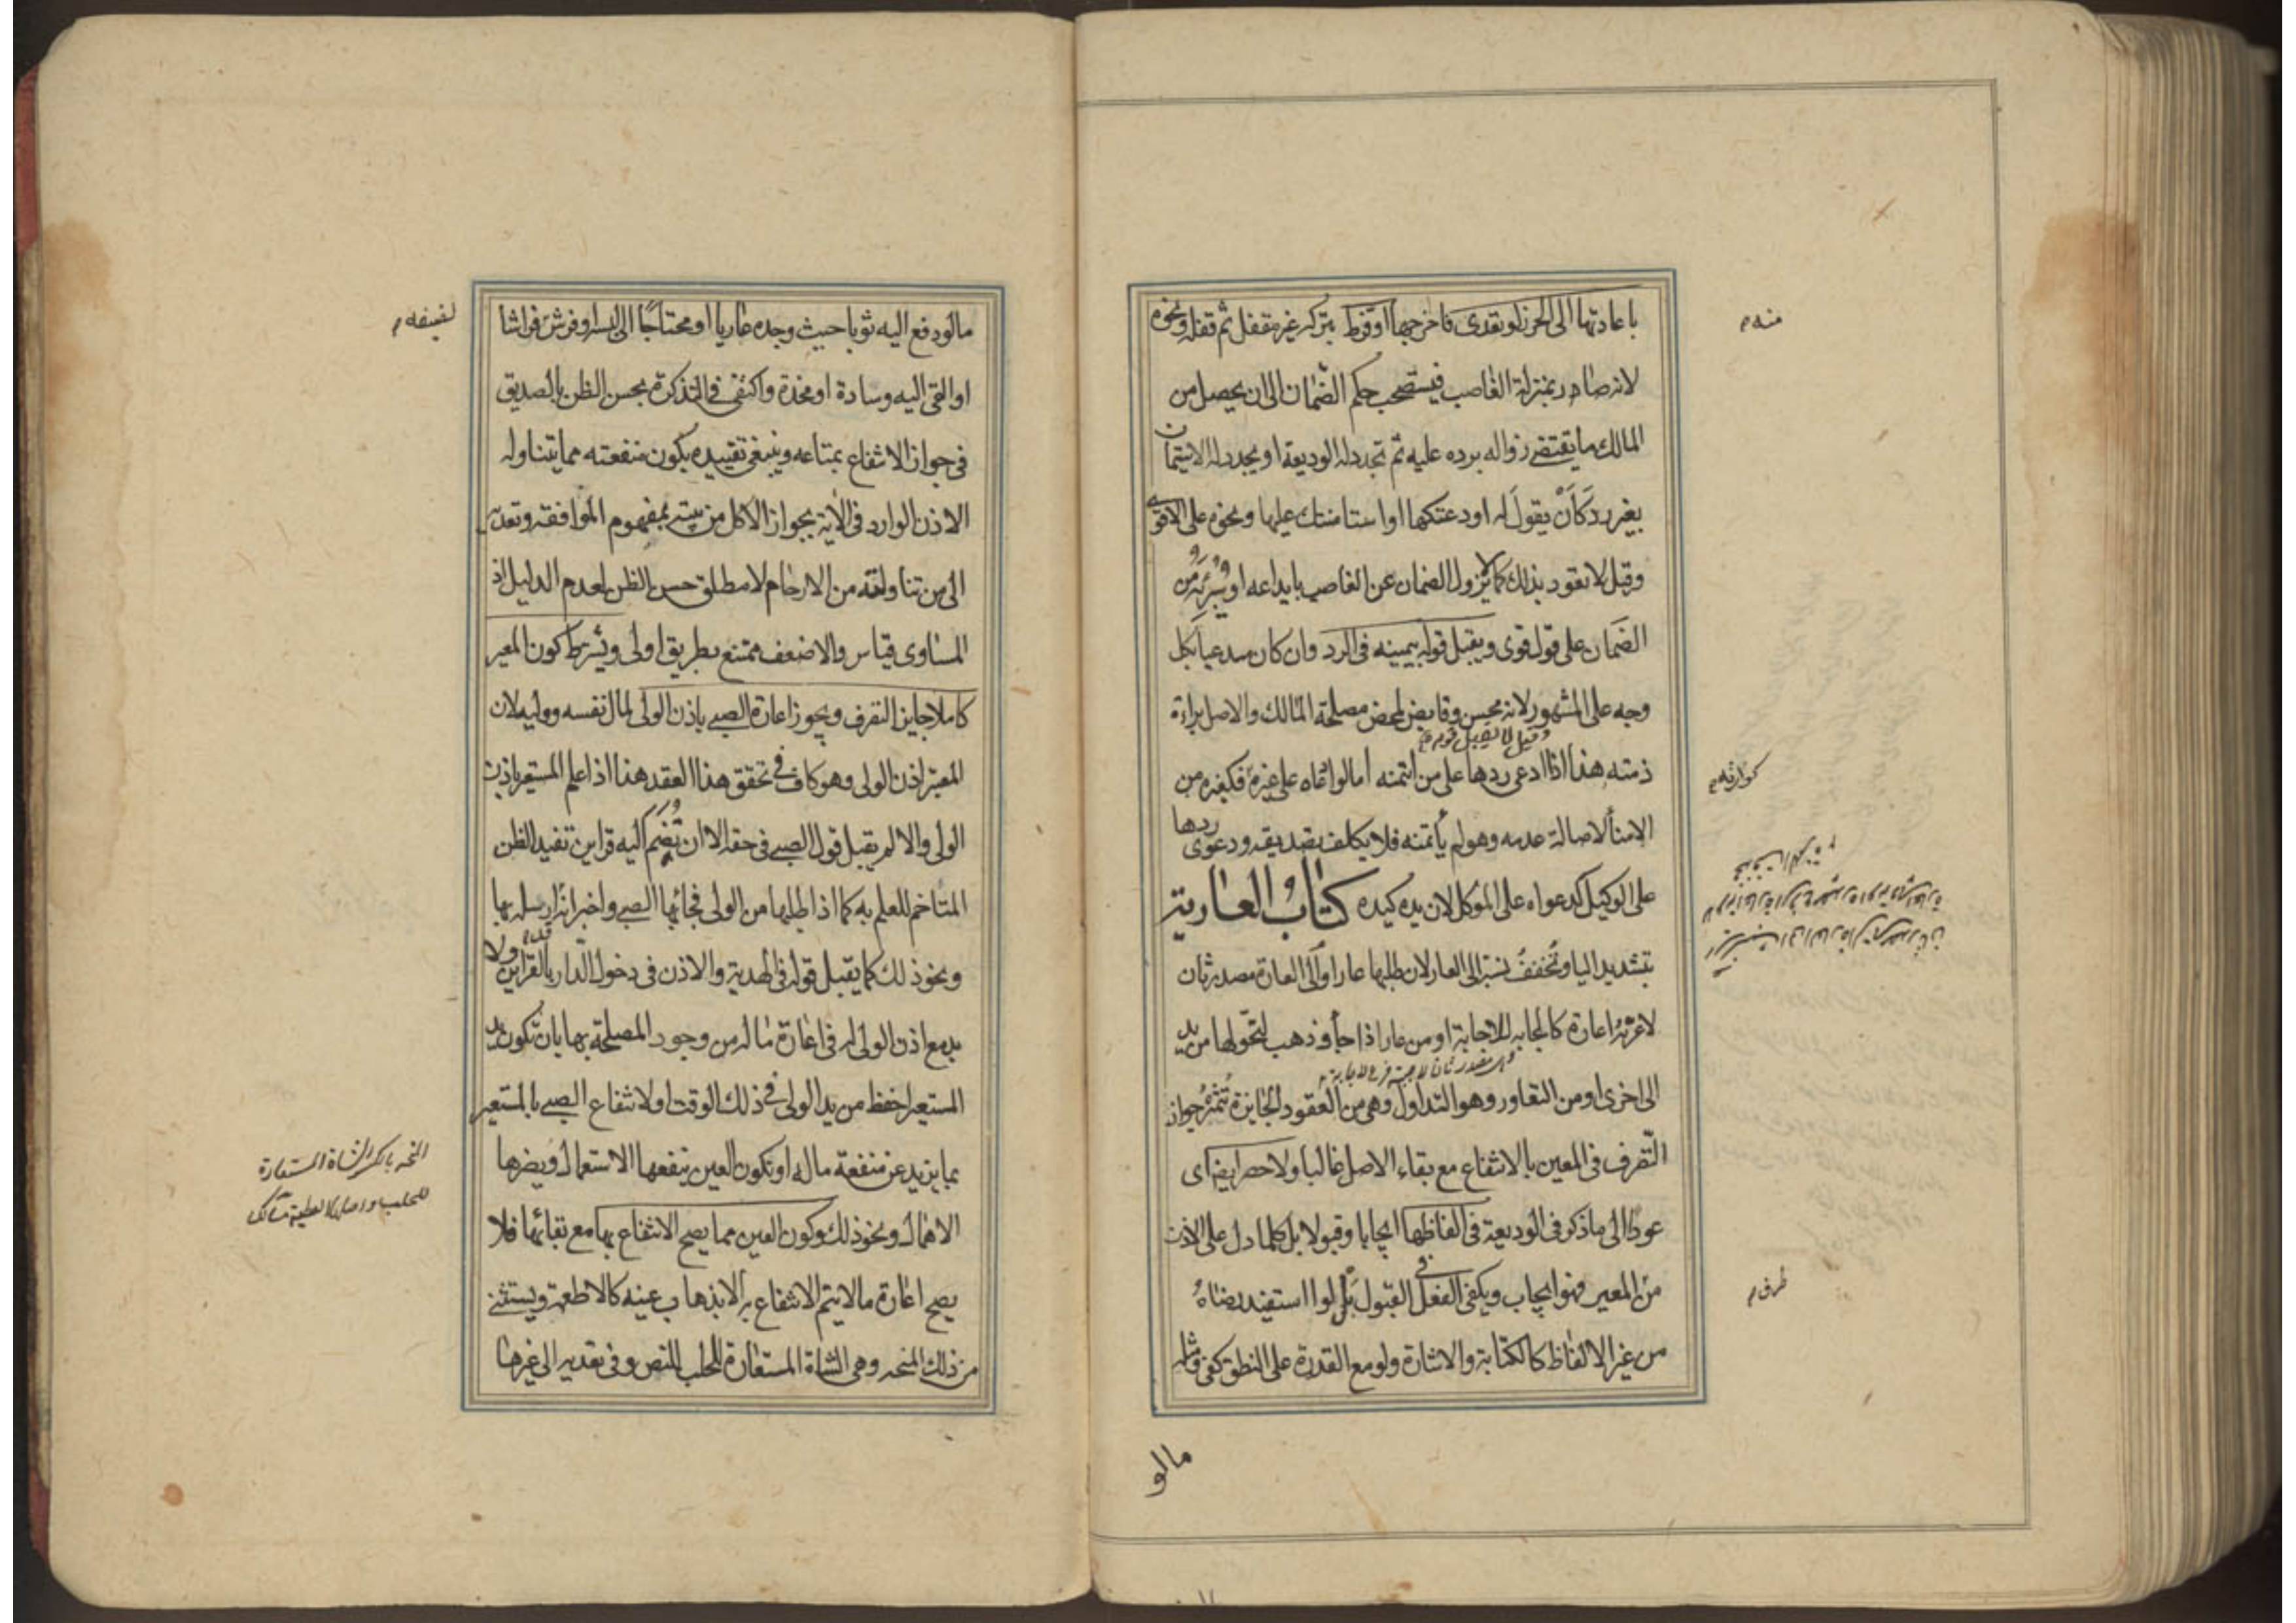 باعادتها الى الحرز لو تعدى فاخرجها او فرط بتركه غير مقفل ثم قفله ونحوه
لانه صار بمنزلة الغاصب فيستصحب حكم الضمان الى ان يحصل من
المالك ما يقتضي زواله برده عليه ثم تجدد له الوديعة او يجدد له الاستيمان
بغير رد كأن يقول له اودعتكها او استامنتك عليها ونحوه على الاقوى
وقيل لا يعود بذلك كما لا يزول الضمان عن الغاصب بايداعه او يبرئه من
الضمان على قول قوى ويقبل قوله بيمينه فى الرد وان كان مدعيا بكل
وجه على المشهور لانه محسن وقابض لمحض مصلحة المالك والاصل براءة
وقيل لا يقبل قوله
ذمته هذا اذا ادعى ردها على من ائتمنه اما لو ادعاه على غيره فكغيره من
الامناء لاصالة عدمه وهو لم يأتمنه فلا يكلف تصديقه ودعوى ردها
على الوكيل كدعواه على الموكل لان يده كيده كتاب العارية
بتشديد اليا وتخفف نسبة الى العار لان طلبها عار او الى العارة مصدر ثان
لاعرته اعارة كالجابه للاجابة او من عار اذا جاء وذهب لتحولها من يد
الى اخرى او من التعاور وهو التداول وهى من العقود الجايزة تثمر جواز
التصرف فى العين بالانتفاع مع بقاء الاصل غالبا ولا حصر ايضا اى
عودا الى ما ذكر فى الوديعة فى الفاظها ايجابا وقبولا بل كلما دل على الاذن
من المعير فهو ايجاب ويكفى الفعل فى القبول بل لو استفيد رضاه
من غير الالفاظ كالكتابة والاشارة ولو مع القدرة على النطق كفى ومثله
مالو
منه م
كوارثه م
طرف م
مالو دفع اليه ثوبا حيث وجده عاريا او محتاجا الى لبسه او فرش فراشا
او القى اليه وسادة او مخدة واكتفى فى التذكرة بحسن الظن بالصديق
فى جواز الانتفاع بمتاعه وينبغى تقييده بكون منفعته مما يتناوله
الاذن الوارد فى الآية بجواز الاكل من بيته بمفهوم الموافقة وتعديه
الى من تناولته من الارحام لا مطلق حسن الظن لعدم الدليل اذ
المساوى قياس والاضعف ممتنع بطريق اولى ويشترط كون المعير
كاملا جايز التصرف ويجوز اعارة الصبى باذن الولى لمال نفسه ووليه لان
المعتبر اذن الولى وهو كاف فى تحقق هذا العقد هذا اذا علم المستعير باذن
الولى والا لم يقبل قول الصبى فى حقه الا ان تضم اليه قراين تفيد الظن
المتاخم للعلم به كما اذا طلبها من الولى فجائها الصبى واخبر انه ارسله بها
ونحو ذلك كما يقبل قوله فى الهدية والاذن فى دخول الدار بالقراين ولا
بد مع اذن الولى له فى اعارة ماله من وجود المصلحة بها بان تكون يد
المستعير احفظ من يد الولى فى ذلك الوقت او لانتفاع الصبى بالمستعير
بما يزيد عن منفعة ماله او تكون العين ينفعها الاستعمال ويضرها
الاهمال ونحو ذلك وكون العين مما يصح الانتفاع بها مع بقائها فلا
يصح اعارة مالا يتم الانتفاع به الا بذهاب عينه كالاطعمة ويستثنى
من ذلك المنحه وهى الشاة المستعارة للحلب للنص وفى تعديه الى غيرها
المنحه بالكسر الشاة المستعارة
للحلب واصلها العطية مسالك